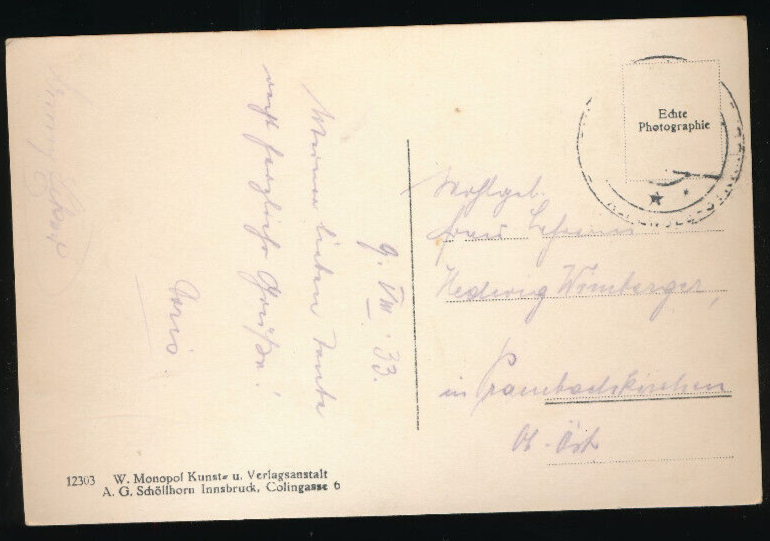 9. VIII. 33.
Meiner lieben Tante
recht herzliche Grüße!
Wohlgeb.
Frau
Hedwig Wimberger,
in Prambachkirchen
Ob. Öst.
Echte
Photographie
12303 W. Monopol Kunst- u. Verlagsanstalt
A. G. Schöllhorn Innsbruck, Colingasse 6